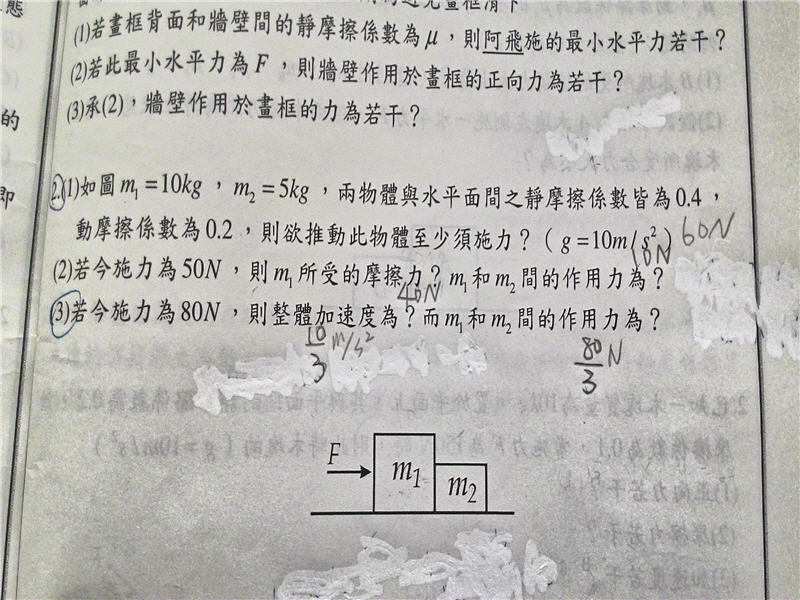 態
(1)若畫框背面和牆壁間的靜摩擦係數為μ，則阿飛施的最小水平力若干？
(2)若此最小水平力為F，則牆壁作用於畫框的正向力為若干？
(3)承(2)，牆壁作用於畫框的力為若干？
的
即
2.(1)如圖m₁=10kg，m₂=5kg，兩物體與水平面間之靜摩擦係數皆為0.4，
動摩擦係數為0.2，則欲推動此物體至少須施力？(g=10m/s²) 60N
(2)若今施力為50N，則m₁所受的摩擦力？m₁和m₂間的作用力為？
40N 10N
(3)若今施力為80N，則整體加速度為？而m₁和m₂間的作用力為？
10/3 m/s² 80/3 N
F
m₁
m₂